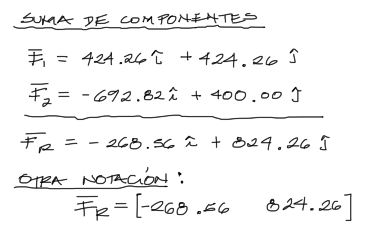 SUMA DE COMPONENTES
F̅₁ = 424.26 î + 424.26 ĵ
F̅₂ = -692.82 î + 400.00 ĵ
F̅R = -268.56 î + 824.26 ĵ
OTRA NOTACIÓN :
F̅R = [-268.56 824.26]